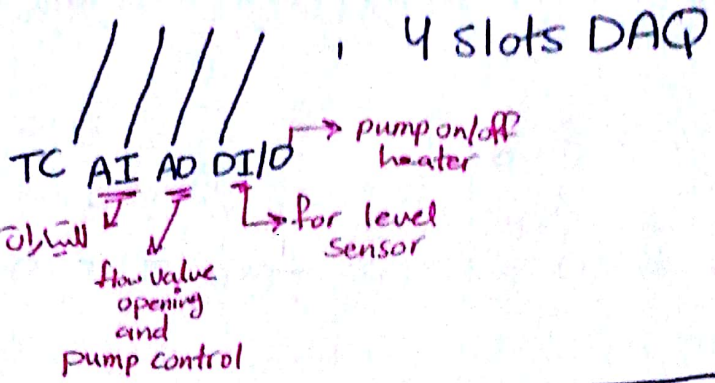 , 4 slots DAQ
TC AI AO DI/O
pump on/off
heater
للتيارات
for level
sensor
flow valve
opening
and
pump control